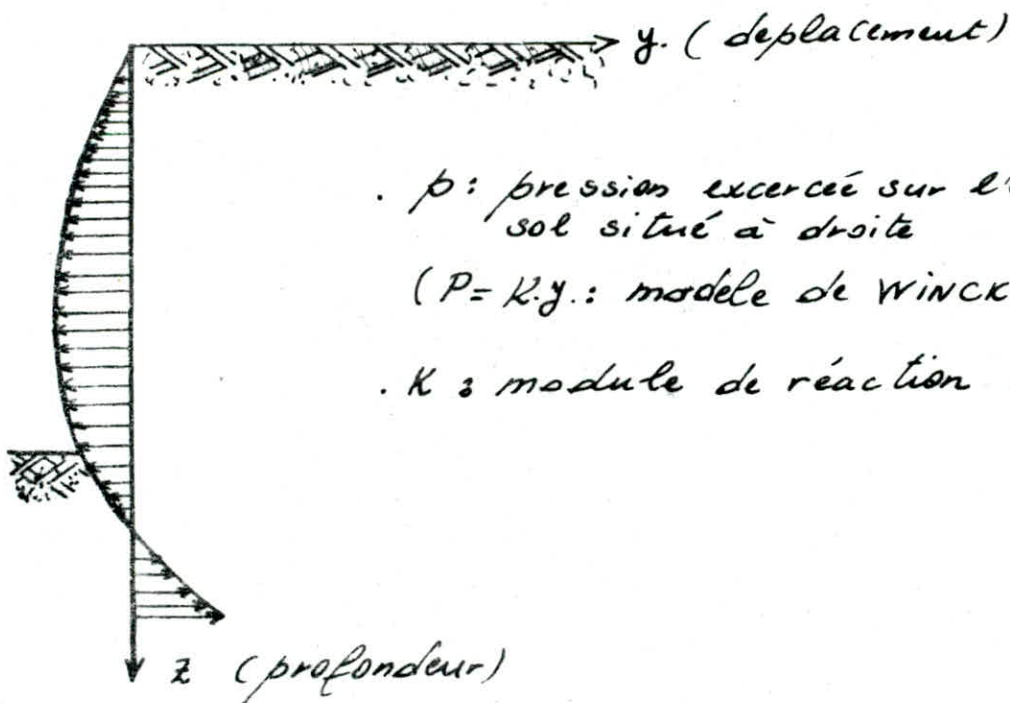 y. (deplacement)
. p: pression excercée sur l'
sol situé à droite
(P= K.y.: modéle de WINCK
. K : module de réaction
z (profondeur)